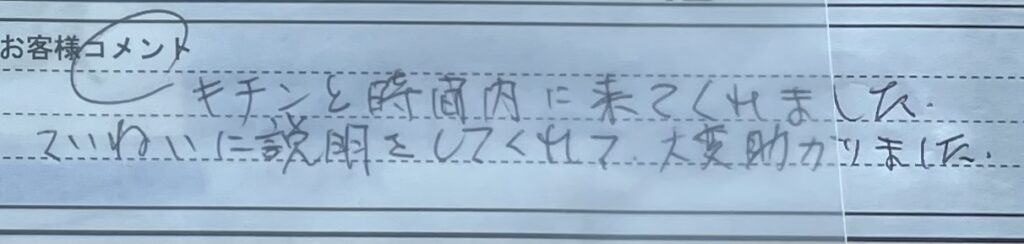 お客様コメント
キチンと時間内に来てくれました.
ていねいに説明をしてくれて、大変助かりました.